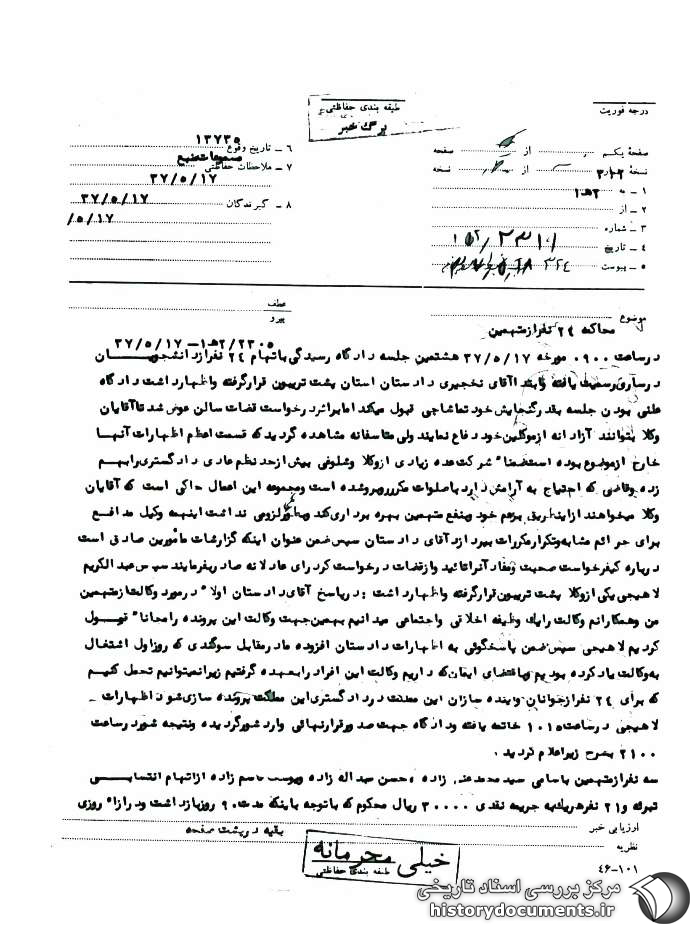 درجه فوریت
طبقه بندی حفاظتی
برگ خبر
صفحهٔ یکم از صفحه
نسخهٔ شماره از نسخه
۱ ـ به ۳۱۲
۲ ـ از ۲هـ۱
۳ ـ شماره
۴ ـ تاریخ
۵ ـ پیوست
۶ ـ تاریخ وقوع ۱۳۷۳۵
۷ ـ ملاحظات حفاظتی
۳۷/۵/۱۷
۸ ـ گیرندگان ۳۷/۵/۱۷
/۵/۱۷
موضوع محاکمه ۲۴ نفر از متهمین
عطف
پیرو
۲هـ۱ـ ۳۷/۵/۱۷
در ساعت ۰۹۰۰ مورخه ۳۷/۵/۱۷ هشتمین جلسه دادگاه رسیدگی باتهام ۲۴ نفر از دانشجویان
در ساری رسمیت یافته و ابتدا آقای نخجیری دادستان استان پشت تریبون قرار گرفته و اظهار داشت دادگاه
علنی بودن جلسه بقدر گنجایش خود تماشاچی قبول میکند اما براثر درخواست قضات سالن عوض شد تا آقایان
وکلا بتوانند آزادانه از موکلین خود دفاع نمایند ولی متاسفانه مشاهده گردید که قسمت اعظم اظهارات آنها
خارج از موضوع بوده است ضمنا" شرکت عده زیادی از وکلا و شلوغی بیش از حد نظم عادی دادگستری را بهم
زده و قاضی که احتیاج به آرامش دارد با صلوات مکرر روبرو شده است و مجموعه این اعمال حاکی است که آقایان
وکلا میخواهند از این طریق بزعم خود و بنفع متهمین بهره برداری کنند لزومی نداشت اینهمه وکیل مدافع
برای جرائم مشابه و تکرار مکررات بپردازد آقای دادستان سپس ضمن عنوان اینکه گزارشات مأمورین صادق است
درباره کیفرخواست صحبت و مفاد آنرا تائید و از قضات درخواست کرد رای عادلانه صادر فرمایند سپس عبدالکریم
لاهیجی یکی از وکلا پشت تریبون قرار گرفته و اظهار داشت : در پاسخ آقای دادستان اولا" در مورد وکالت از متهمین
من و همکارانم وکالت را یک وظیفه اخلاقی و اجتماعی میدانیم بهمین جهت وکالت این پرونده را مجانا" قبول
کردیم لاهیجی سپس ضمن پاسخگوئی به اظهارات دادستان افزود ما در مقابل سوگندی که روز اول اشتغال
به وکالت یاد کرده بودیم و باقتضای ایمان که داریم وکالت این افراد را بعهده گرفتیم زیرا نمیتوانیم تحمل کنیم
که برای ۲۴ نفر از جوانان و آینده سازان این مملکت در دادگستری این مملکت پرونده سازی شود اظهارات ـ
لاهیجی در ساعت ۱۰۱۵ خاتمه یافته و دادگاه جهت صدور قرار نهائی وارد شور گردیده و نتیجه شور در ساعت
۲۱۰۰ بشرح زیر اعلام گردید .
سه نفر از متهمین باسامی سید محمد زاده ، حسن عبداله زاده و یوسف قاسم زاده از اتهام انتسابی
تبرئه و ۲۱ نفر هر یک به جریمه نقدی ۳۰۰۰۰ ریال محکوم که با توجه باینکه مدت ۹۰ روز بازداشت و در ازاء روزی
بقیه در پشت صفحه
ارزیابی خبر
نظریه
۴۶-۱۰۱
خیلی محرمانه
طبقه بندی حفاظتی
مرکز بررسی اسناد تاریخی
historydocuments.ir